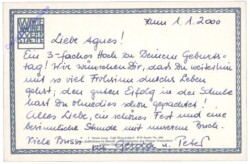 Wien 1.1.2000
Liebe Agnes!
Ein 3-faches Hoch zu Deinem Geburts-
tag! Wir wünschen Dir, dass Du weiterhin
mit so viel Frohsinn durchs Leben
gehst, den guten Erfolg in der Schule
hast Du ohnedies schon gepachtet!
Alles Liebe, ein schönes Fest und eine
besinnliche Stunde mit unserem Buch.
Viele Bussi
von Gerda u. Peter